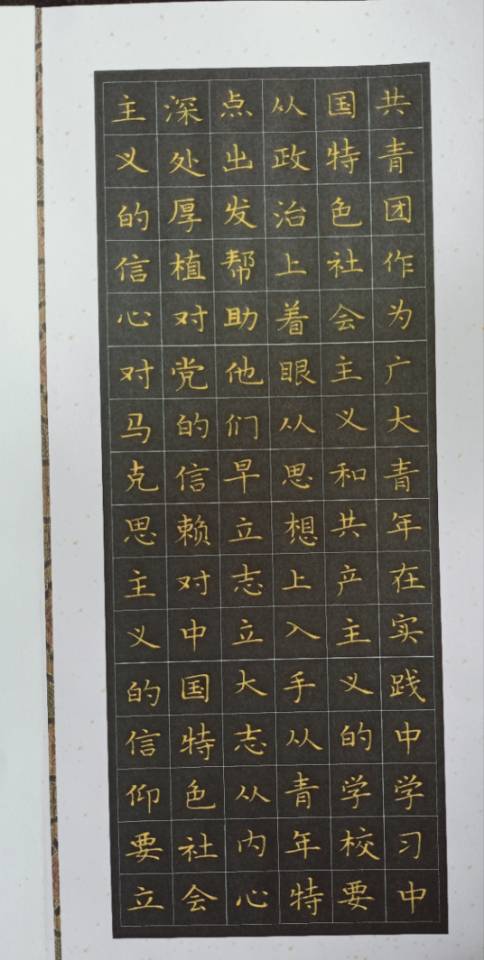 共青团作为广大青年在实践中学习中
国特色社会主义和共产主义的学校要
从政治上着眼从思想上入手从青年特
点出发帮助他们早立志立大志从内心
深处厚植对党的信赖对中国特色社会
主义的信心对马克思主义的信仰要立